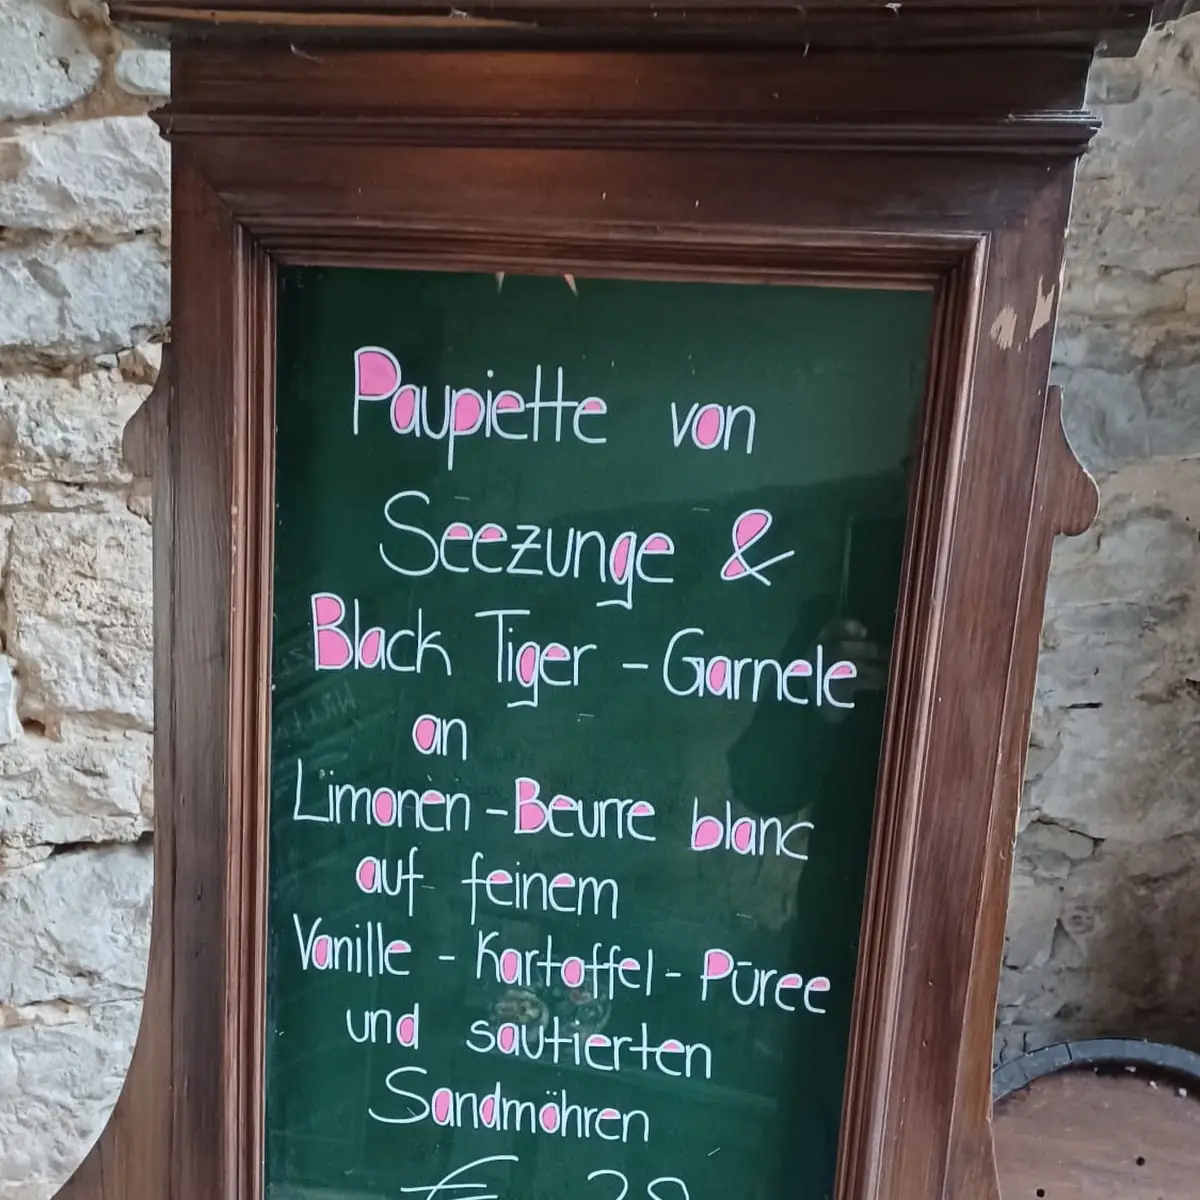 Paupiette von
Seezunge &
Black Tiger - Garnele
an
Limonen - Beurre blanc
auf feinem
Vanille - Kartoffel - Püree
und sautierten
Sandmöhren
€